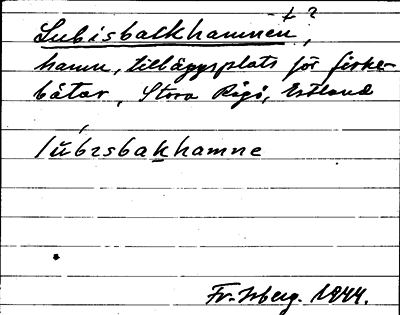 Lubisbackhamnen † ?,
hamn, tilläggsplats för fiske-
båtar, Stora Rågö, Estland
lúbɪsbakhamne
Fr. Isberg. 1944.